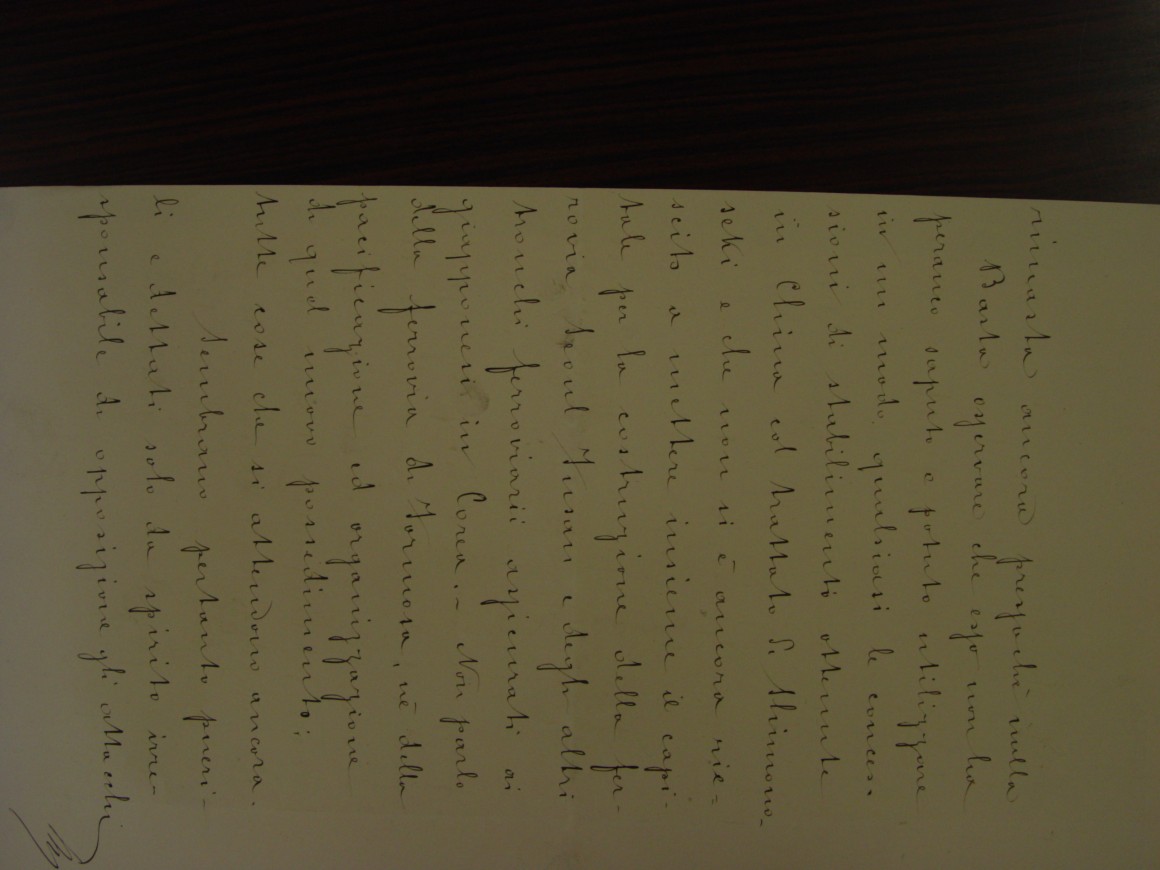 rimasta ancora pressochè nulla
Basta osservare che esso non ha
peranco saputo o potuto utilizzare
in un modo qualsiasi le conces-
sioni di stabilimento ottenute
in China col trattato di Shimono-
seki e che non si è ancora rie=
scito a mettere insieme il capi-
tale per la costruzione della fer-
rovia Seoul Fusan e degli altri
tronchi ferroviarii assicurati ai
giapponesi in Corea. - Non parlo
della ferrovia di Formosa, nè della
pacificazione ed organizzazione
di quel nuovo possedimento;
tutte cose che si attendono ancora.
Sembrano pertanto pueri-
li e dettati solo da spirito irre-
sponsabile di opposizione gli attacchi